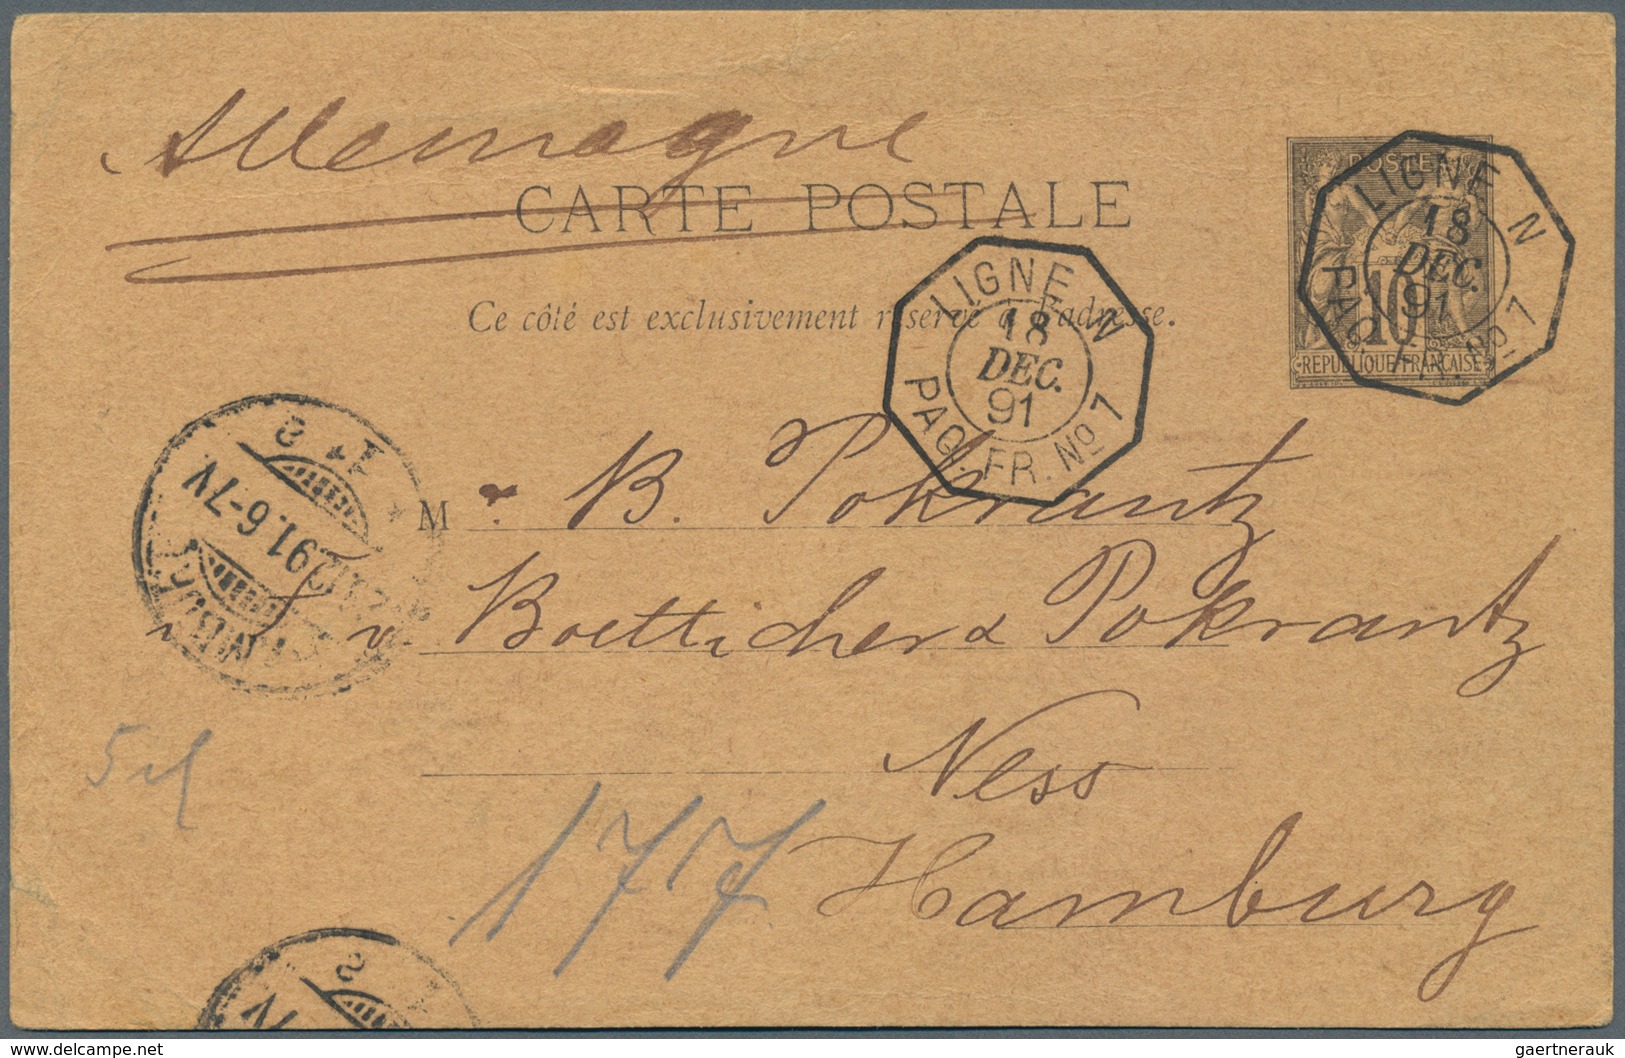 Allemagne
CARTE POSTALE
Ce côté est exclusivement réservé à l'adresse.
POSTES
10
REPUBLIQUE FRANÇAISE
LIGNE N
18
DEC.
91
PAQ. FR. No 7
LIGNE N
18
DEC.
91
PAQ. FR. No 7
M r B. Pokrantz
v. Boetticher & Pokrantz
Ness
Hamburg
HAMBURG
91.6-7V
1*
2
177
7V
delcampe.net
gaertnerauk